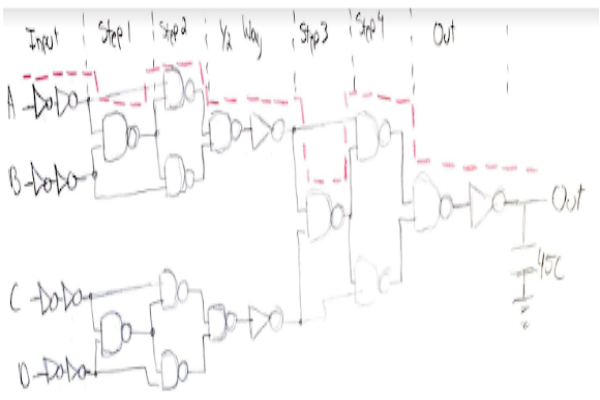 Input Step 1 Step 2 1/2 Way Step 3 Step 4 Out
A
B
Out
45C
C
D